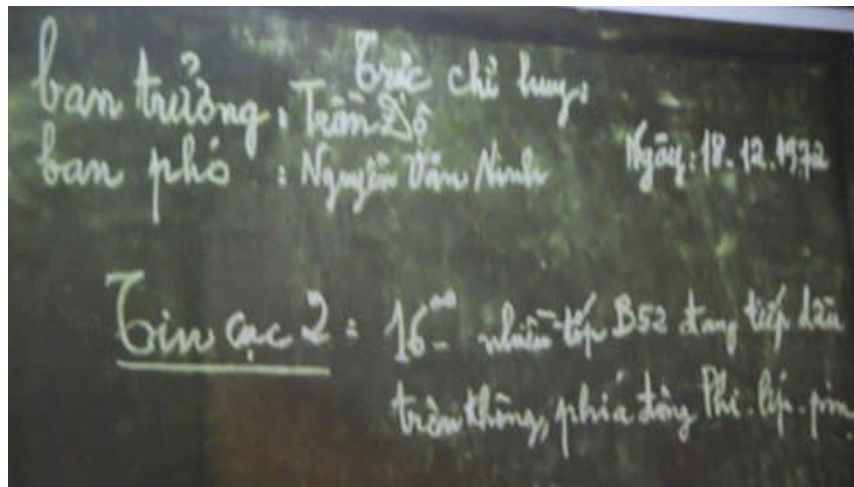 Trực chỉ huy:
ban trưởng: Trần Độ
ban phó : Nguyễn Văn Ninh
Ngày: 18.12.1972
Tin cục 2: 16 00 nhiều tốp B52 đang tiếp dầu
trên không, phía đông Phi-líp-pin